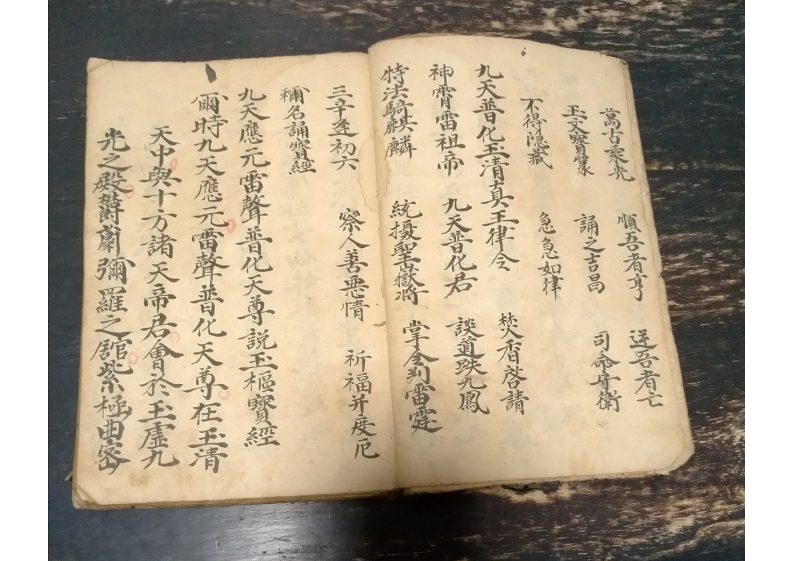 萬古乘光 順吾者亨 逆吾者亡
玉文寶篆 誦之吉昌 司命守衛
不得隱藏 急急如律
九天普化玉清真王律令 焚香啓請
神霄雷祖帝 九天普化君 談道趺九鳳
特法騎麒麟 統攝聖嶽將 掌令判雷霆
三辛逢初六 察人善惡情 祈福并度厄
稱名誦寶經
九天應元雷聲普化天尊說玉樞寶經
爾時九天應元雷聲普化天尊在玉清
天中與十方諸天帝君會於玉虛九
光之殿鬱蕭彌羅之舘紫極曲密